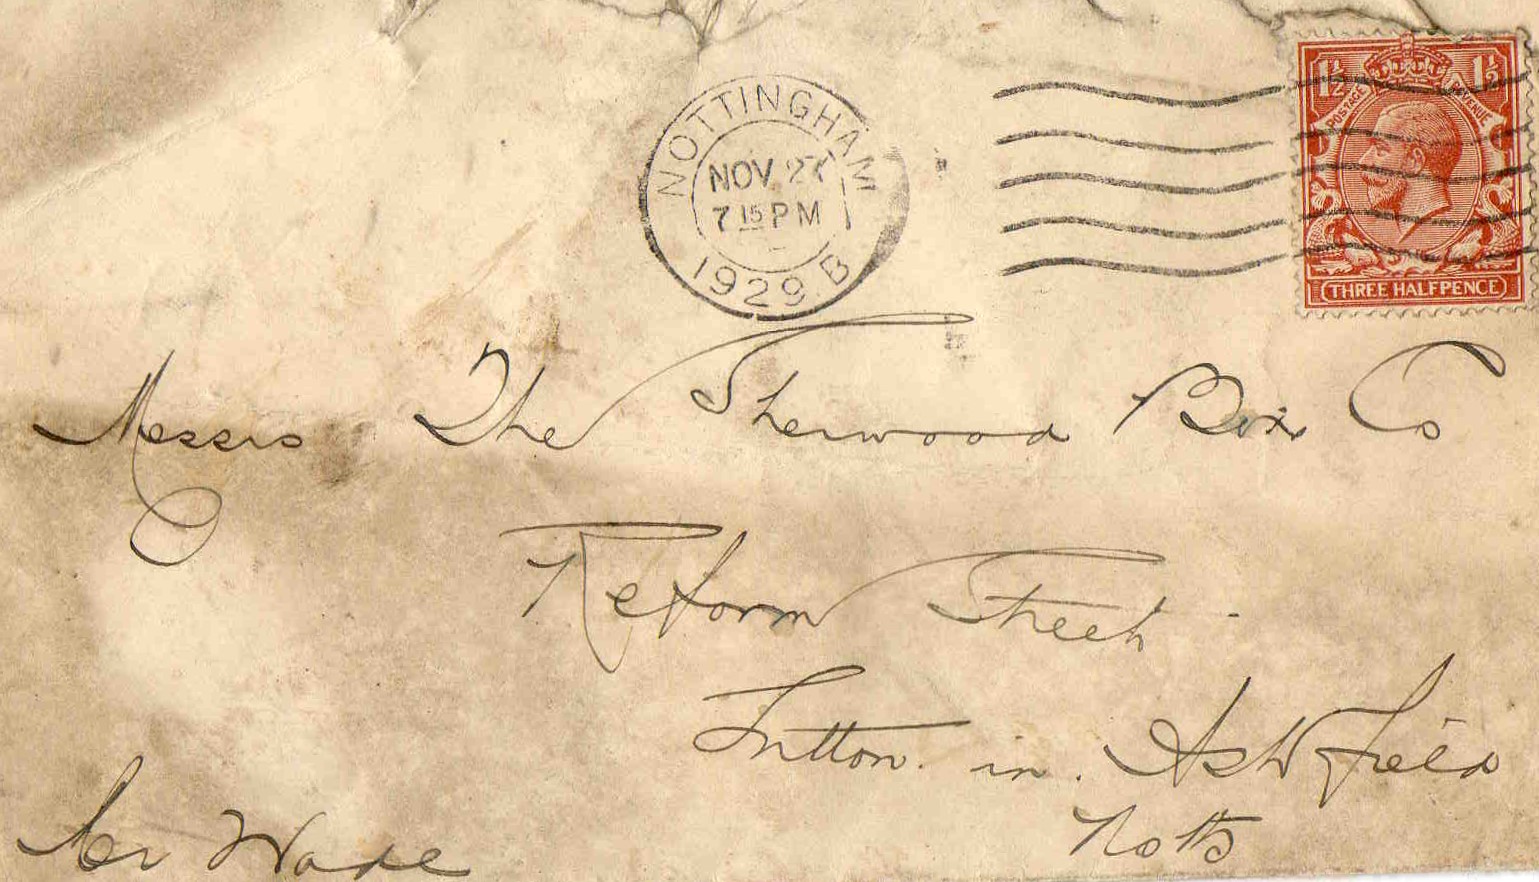 NOTTINGHAM
NOV 27
7 15 PM
1929. B
1½ POSTAGE REVENUE 1½
THREE HALFPENCE
Messrs The Sherwood Box Co
Reform Street
Sutton. in. Ashfield
Notts
Wade